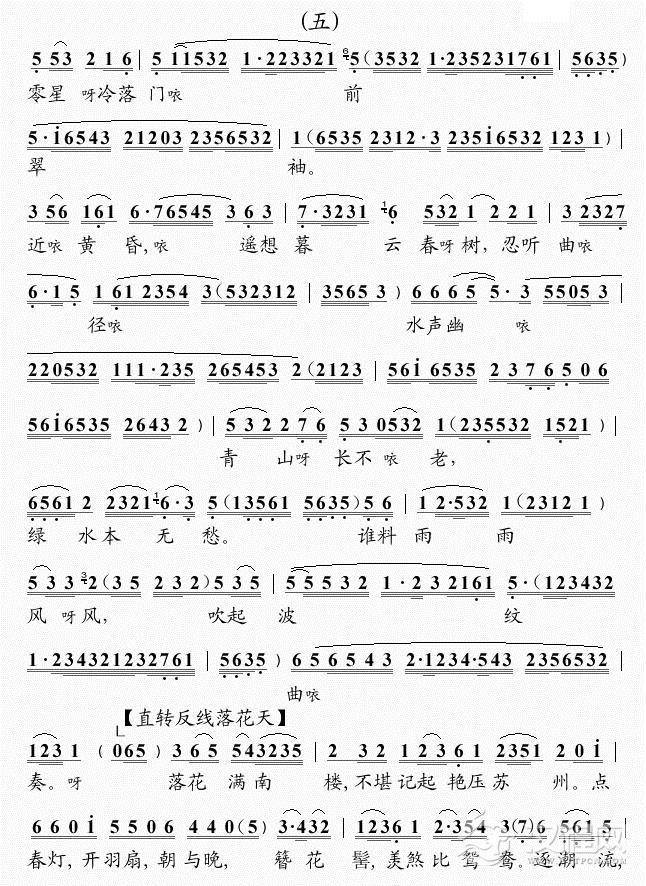 （五）
5 53 2 1 6 | 5 11532 1·223321 6 5(3532 1·235231761 | 5635)
零星 呀冷落 门咴 前
5·i6543 21203 2356532 | 1(6535 2312·3 235i6532 123 1) |
翠 袖。
3 56 161 6·76545 3 6 3 | 7·3231 1 6 532 1 2 2 1 | 3 2327
近咴 黄 昏,咴 遥想 暮 云 春呀树, 忍听 曲咴
6·1 5 1 61 2354 3(532312 | 3565 3 ) 6 6 6 5 5·3 5505 3
径咴 水声幽 咴
220532 111·235 265453 2(2123 | 56i 6535 2 3 7 6 5 0 6
56i6535 2643 2 ) | 5 3 2 2 7 6 5 3 0532 2(235532 1521) |
青 山呀 长不 咴 老,
6561 2 2321 1 6·3 5(13561 5635)5 6 | 1 2·532 1(2312 1 )
绿 水本 无 愁。 谁料 雨 雨
5 3 3 3 2(3 5 2 3 2 )5 3 5 | 5 5 5 3 2 1·2 3 2161 5·(123432
风 呀风, 吹起 波 纹
1·234321232761 | 5635 ) 6 5 6 5 4 3 2·1234·543 2356532 |
曲咴
【直转反线落花天】
123 1 ( 065) 3 6 5 543235 | 2 3 2 1 2 3 6 1 2351 2 0 i |
奏。呀 落花 满南 楼,不堪 记起 艳压 苏 州。点
6 6 0 i 5 5 0 6 4 4 0(5) 3·432 | 1236 1 2·354 3(7)6 561 5 |
春灯,开羽扇,朝与晚, 簪 花 髻,羡煞 比 鸳 鸯。逐潮 流,